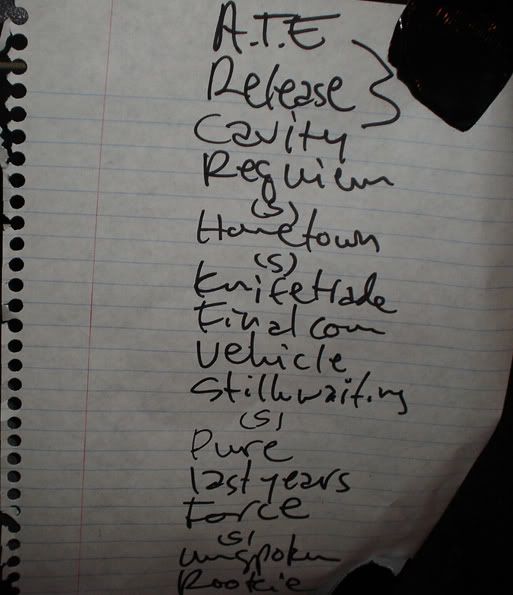 A.T.E
Release
Cavity
Requiem
(S)
Hometown
(S)
Knifetrade
Final com
Vehicle
Still waiting
(S)
Pure
last years
Force
(S)
unspoken
Rookie